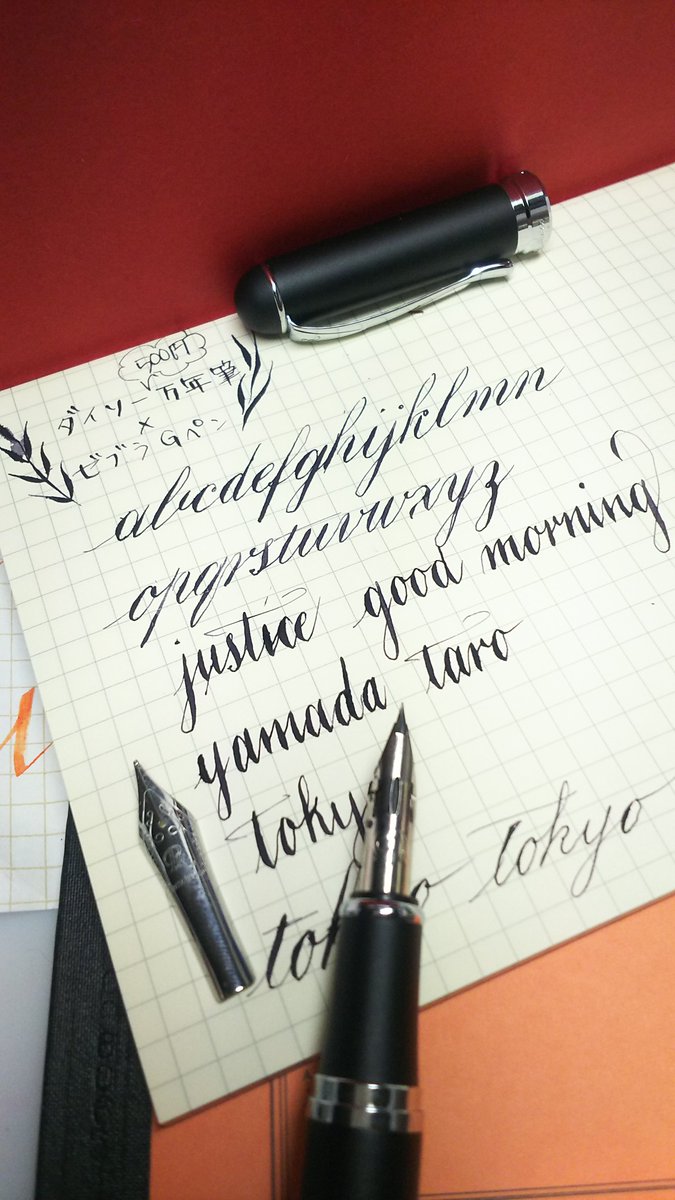 500円
ダイソー万年筆
×
ゼブラGペン
abcdefghijklmn
opqrstuvwxyz
justice good morning
yamada taro
tokyo
tokyo tokyo